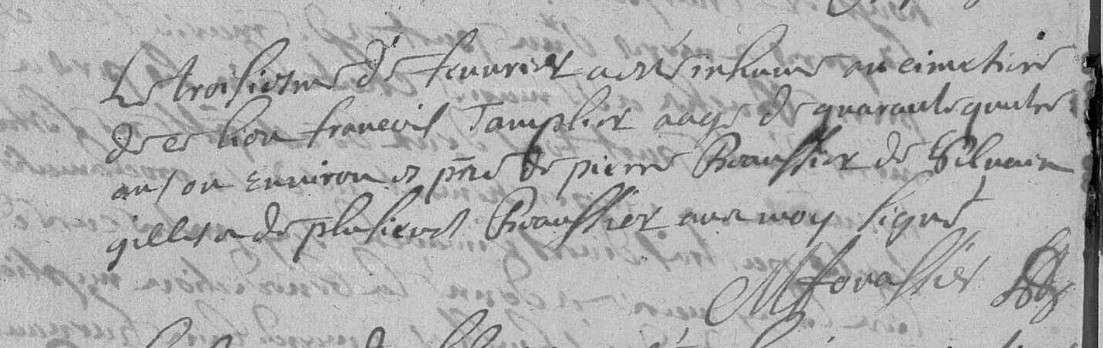 Le troisiesme de feuvrier a esté inhumé au cimetiere
de ce lieu francois Tamplier aagé de quarante quatre
ans ou environ es pnce de pierre Braussier de Silvain
gilles et de plusieurs Braussier avec moy signé